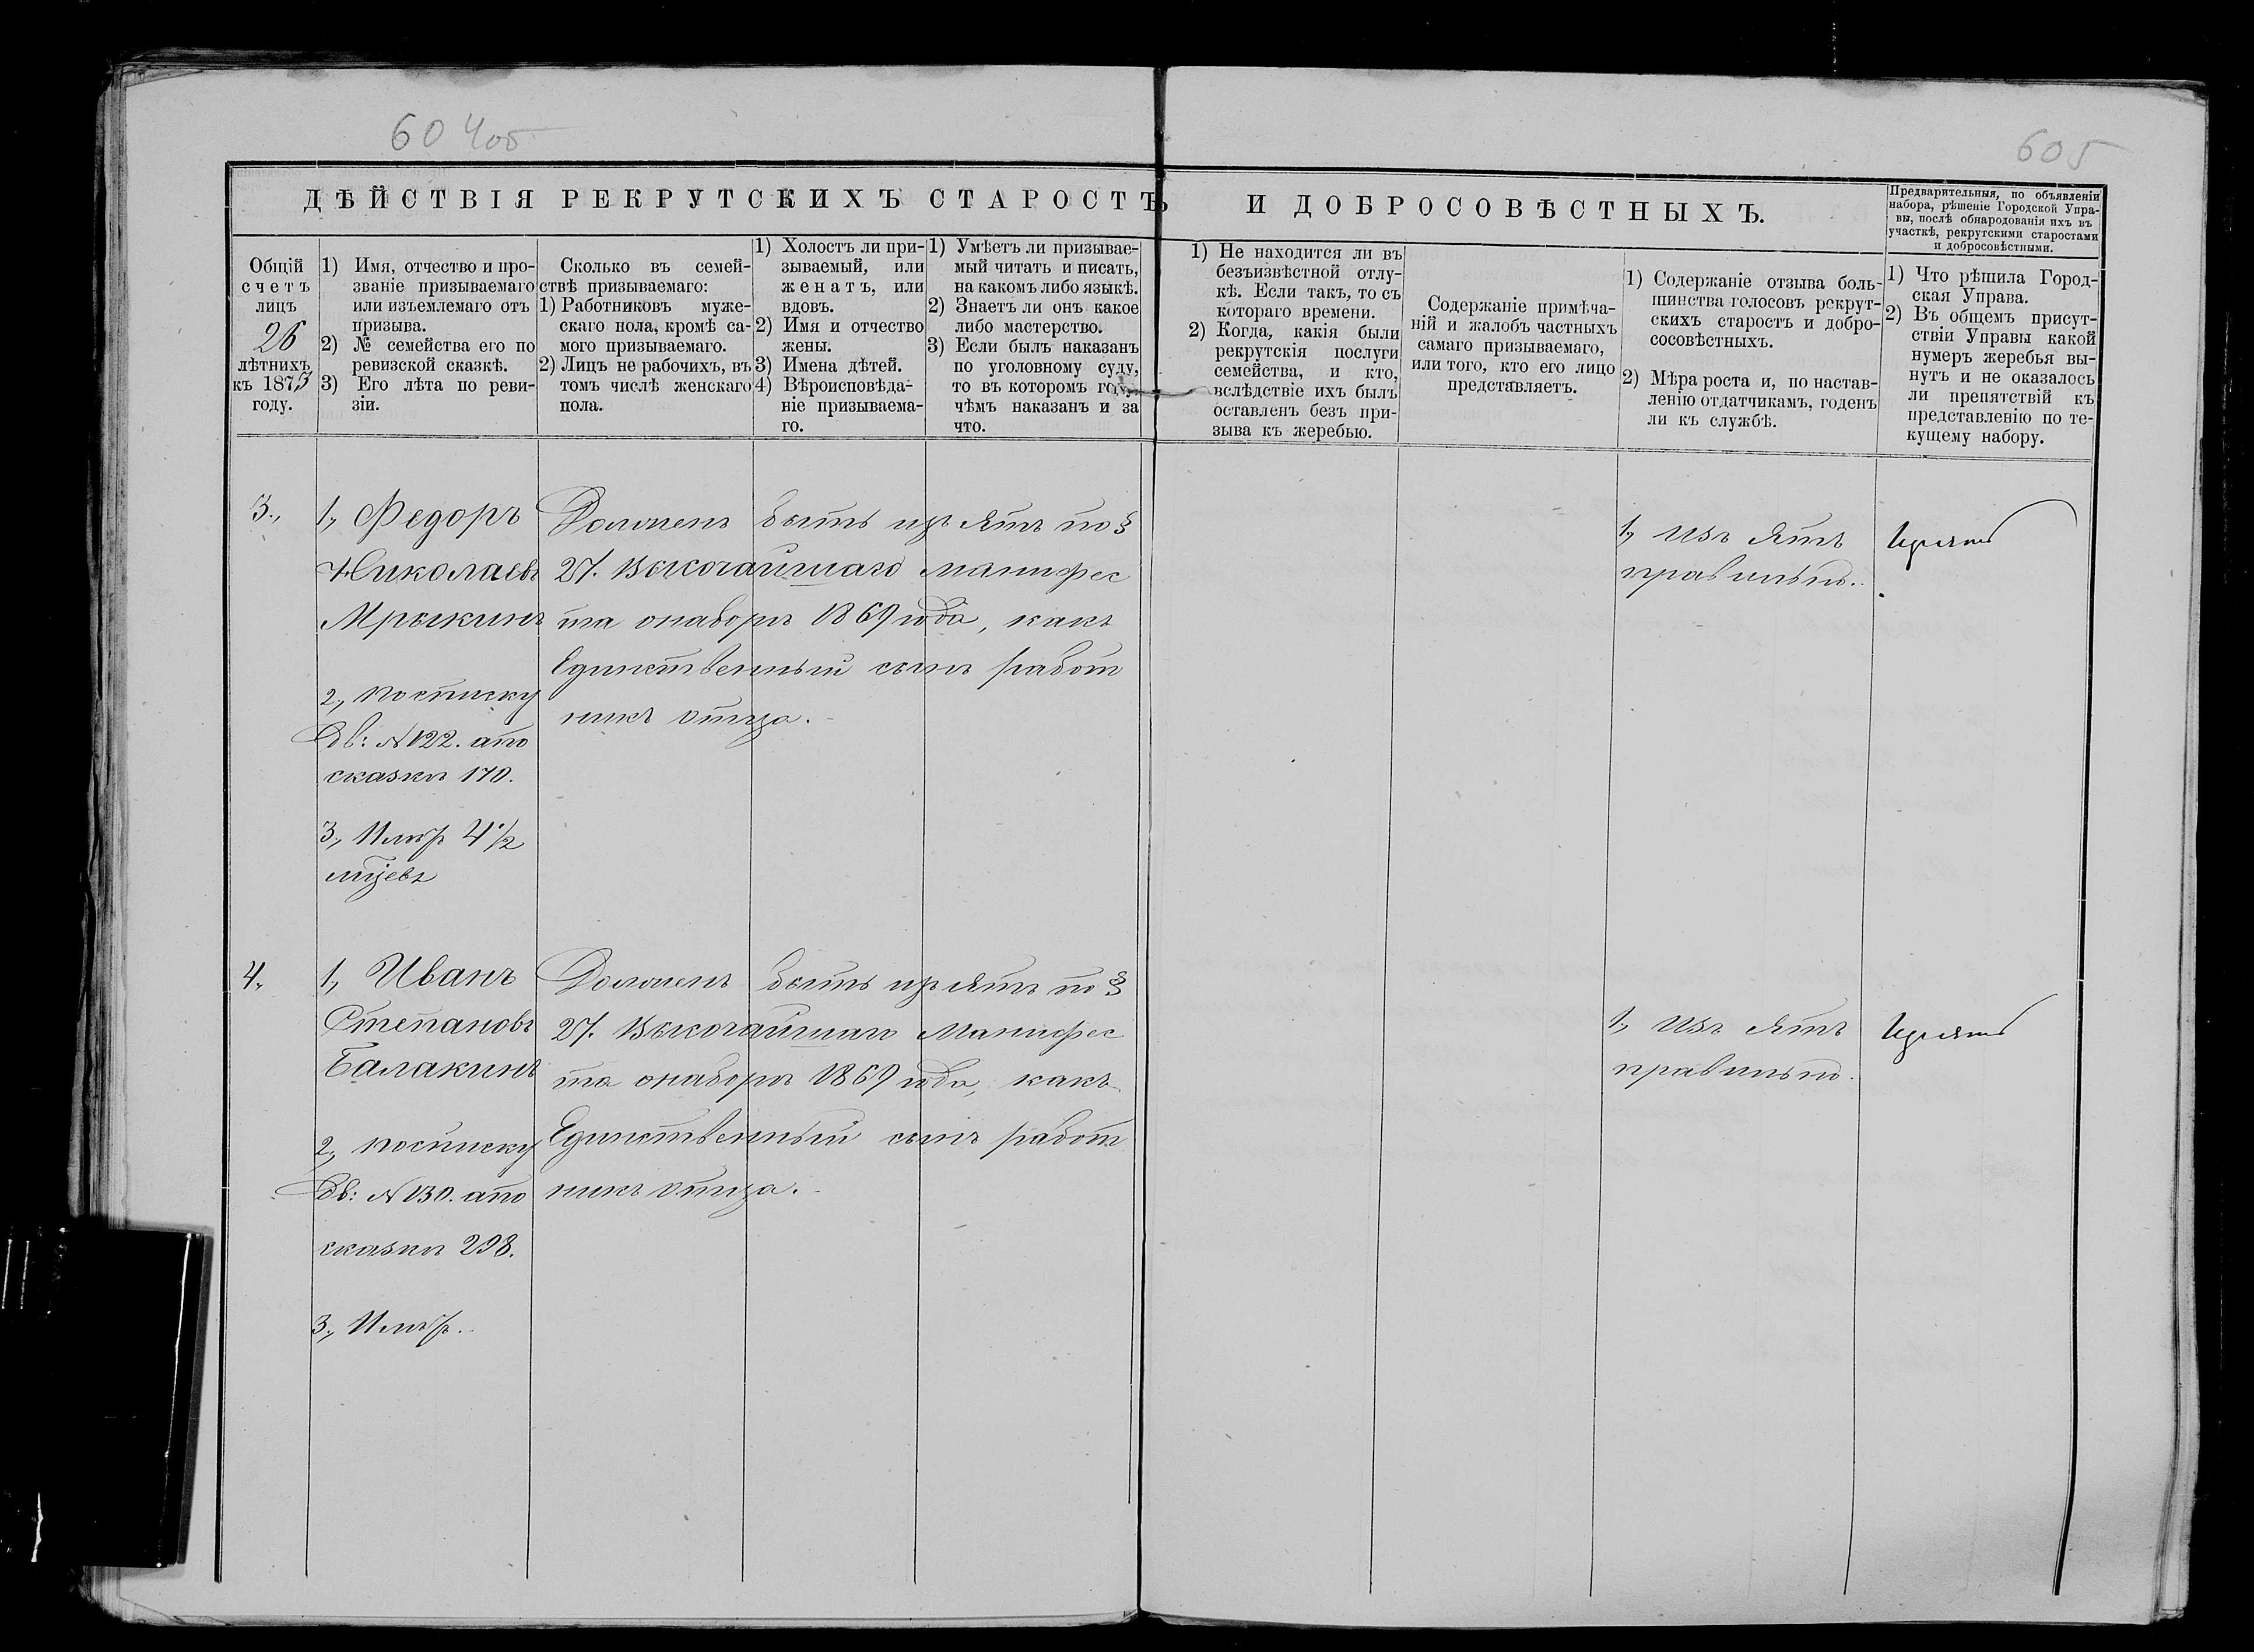 604об
605
ДѢЙСТВІЯ РЕКРУТСКИХЪ СТАРОСТЪ И ДОБРОСОВѢСТНЫХЪ.
Предварительныя, по объявленіи
набора, рѣшеніе Городской Упра-
вы, послѣ обнародованія ихъ въ
участкѣ, рекрутскими старостами
и добросовѣстными.
Общій
счетъ
лицъ
26
лѣтнихъ
къ 1873
году.
1) Имя, отчество и про-
званіе призываемаго
или изъемлемаго отъ
призыва.
2) № семейства его по
ревизской сказкѣ.
3) Его лѣта по реви-
зіи.
Сколько въ семей-
ствѣ призываемаго:
1) Работниковъ муже-
скаго пола, кромѣ са-
мого призываемаго.
2) Лицъ не рабочихъ, въ
томъ числѣ женскаго
пола.
1) Холостъ ли при-
зываемый, или
женатъ, или
вдовъ.
2) Имя и отчество
жены.
3) Имена дѣтей.
4) Вѣроисповѣда-
ніе призываема-
го.
1) Умѣетъ ли призывае-
мый читать и писать,
на какомъ либо языкѣ.
2) Знаетъ ли онъ какое
либо мастерство.
3) Если былъ наказанъ
по уголовному суду,
то въ которомъ году,
чѣмъ наказанъ и за
что.
1) Не находится ли въ
безъизвѣстной отлу-
кѣ. Если такъ, то съ
котораго времени.
2) Когда, какія были
рекрутскія послуги
семейства, и кто,
вслѣдствіе ихъ былъ
оставленъ безъ при-
зыва къ жеребью.
Содержаніе примѣча-
ній и жалобъ частныхъ
самаго призываемаго,
или того, кто его лицо
представляетъ.
1) Содержаніе отзыва боль-
шинства голосовъ рекрут-
скихъ старостъ и добро-
сосовѣстныхъ.
2) Мѣра роста и, по настав-
ленію отдатчикамъ, годенъ
ли къ службѣ.
1) Что рѣшила Город-
ская Управа.
2) Въ общемъ присут-
ствіи Управы какой
нумеръ жеребья вы-
нутъ и не оказалось
ли препятствій къ
представленію по те-
кущему набору.
3.,
1., Федоръ
Николаевъ
Мрыкинъ
2., по списку
Дв: N 122. а по
сказкѣ 170.
3., Имѣ 4 1/2
Долженъ быть изъятъ по §
27. Высочайшаго манифес
та о наборѣ 1869 года, какъ
Единственный сынъ работ
никъ отца.
1., Изъятъ
правильно.
Изъятъ
4.,
1., Иванъ
Степановъ
Балакинъ
2., по списку
Дв: N 130. а по
сказкѣ 298.
3.,
Долженъ быть изъятъ по §
27. Высочайшаго Манифес
та о наборѣ 1869 года, какъ
Единственный сынъ работ
никъ отца.
1., Изъятъ
правильно.
Изъятъ